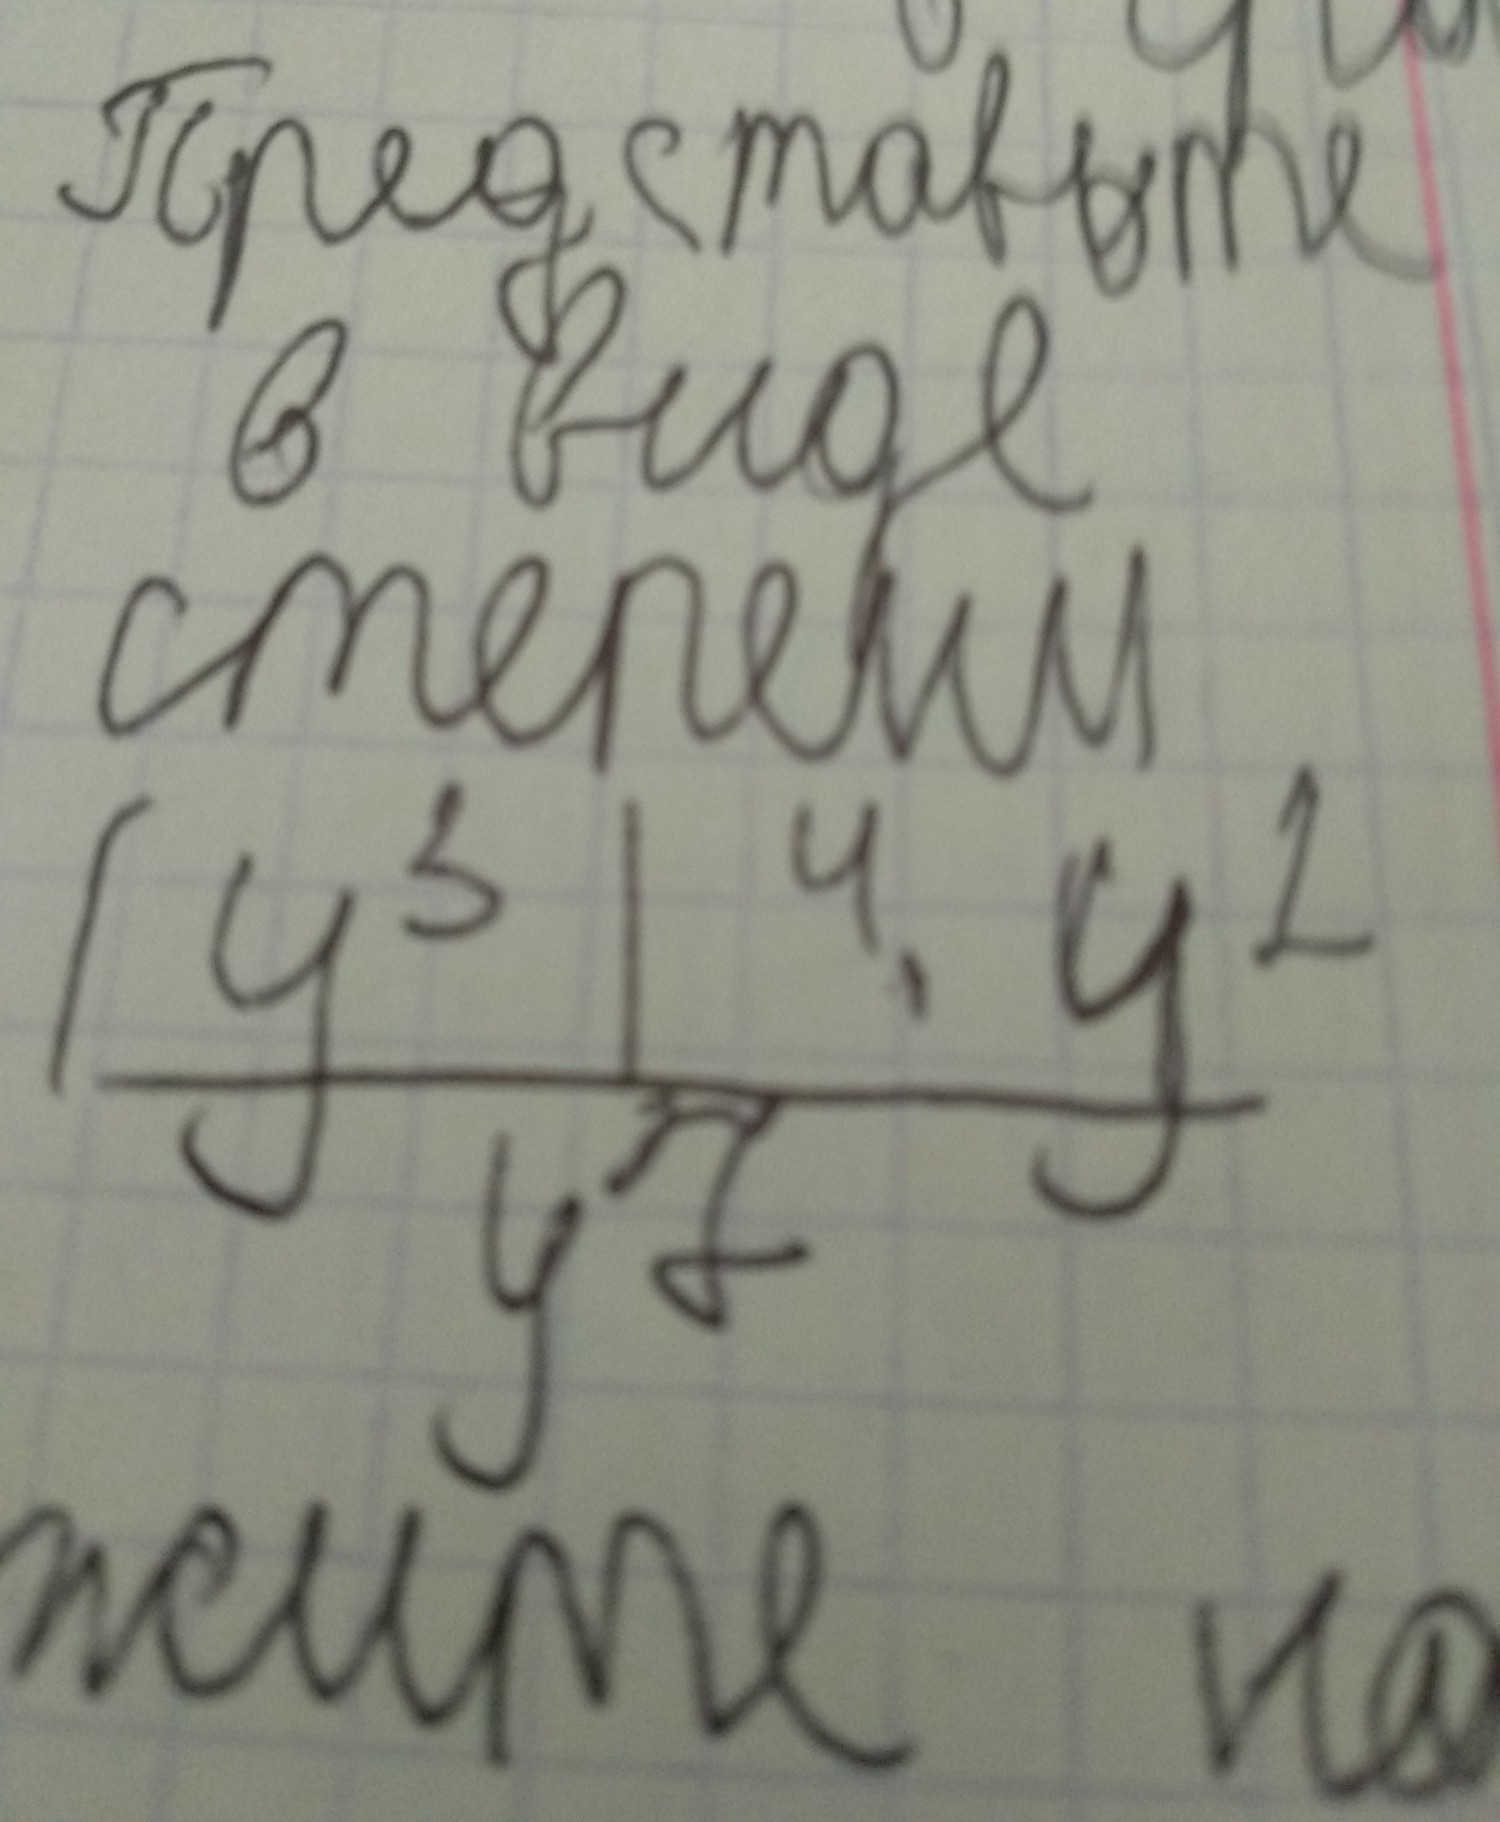 Представьте
в виде
степени
(y³)⁴ · y²
y⁷
жите на